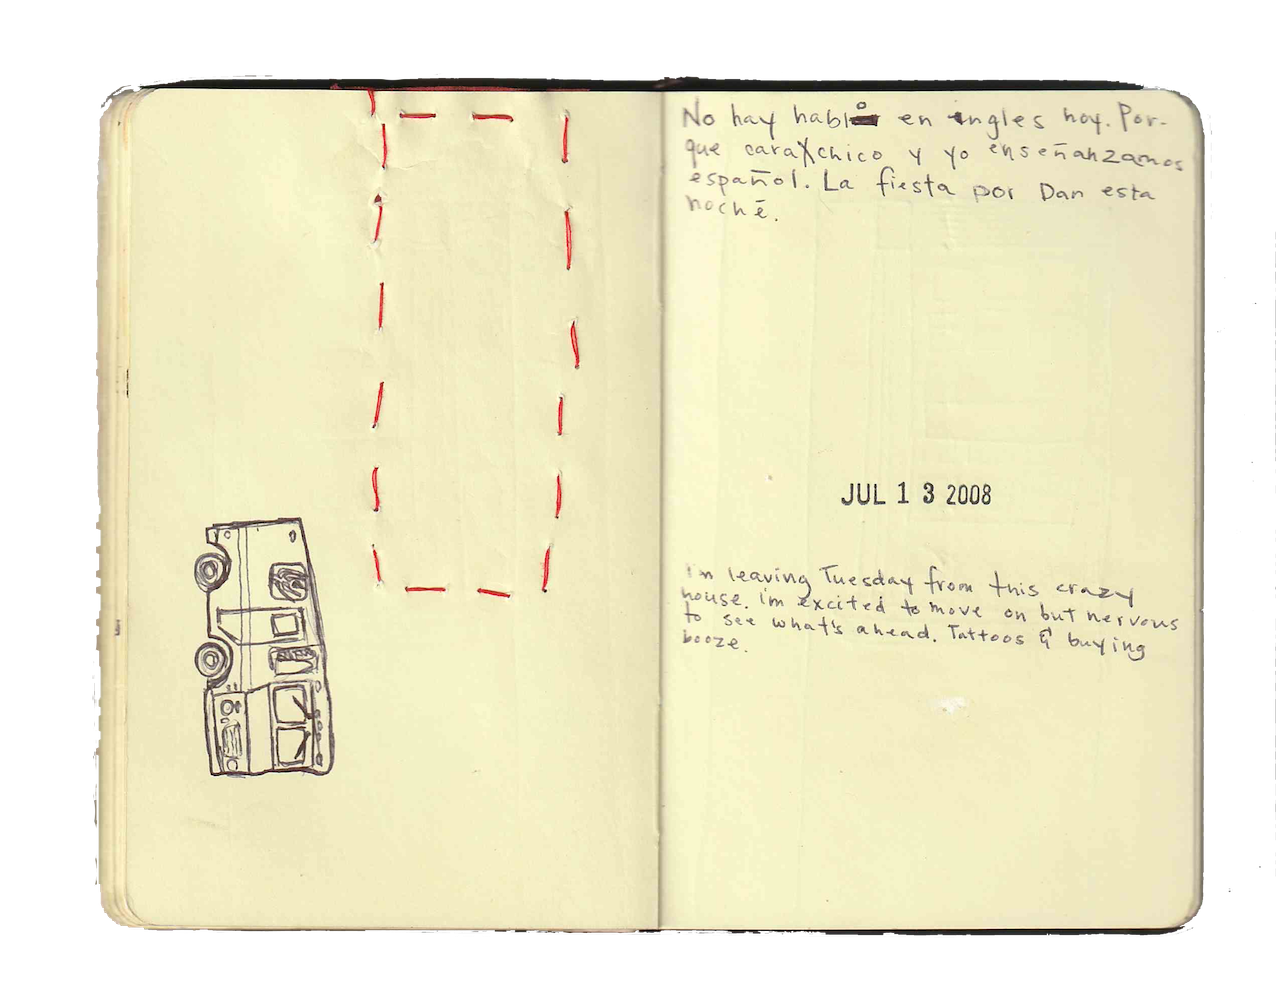 No hay hablo en ingles hoy. Por-
que caraXchico y yo enseñanzamos
español. La fiesta por Dan esta
noche.
JUL 13 2008
I'm leaving Tuesday from this crazy
house. I'm excited to move on but nervous
to see what's ahead. Tattoos & buying
booze.